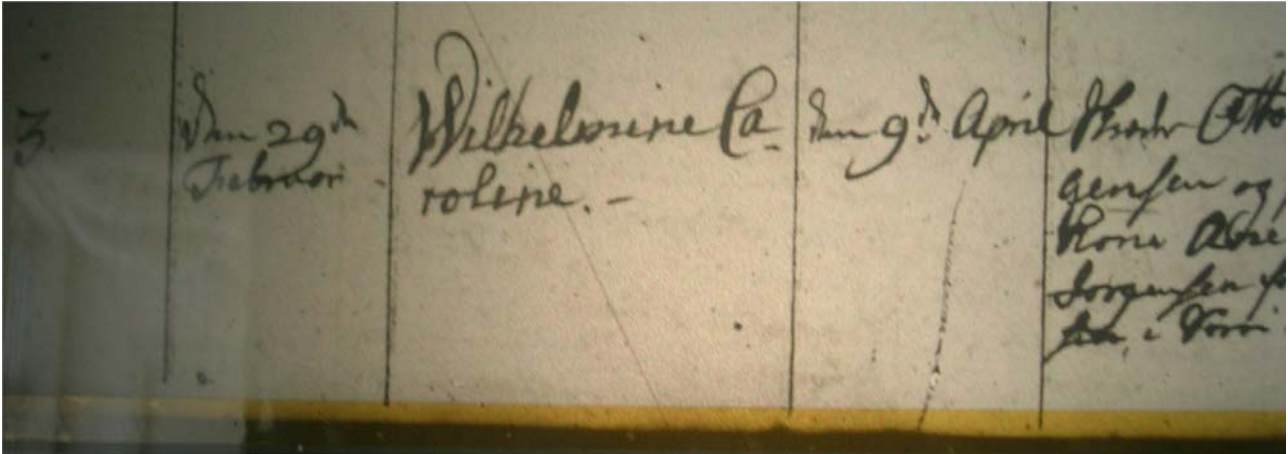 3.
Den 29de
Februari -
Wilhelmine Ca-
roline. -
den 9de April
Otto
gensen og
Kone Ane
Jørgensen
i